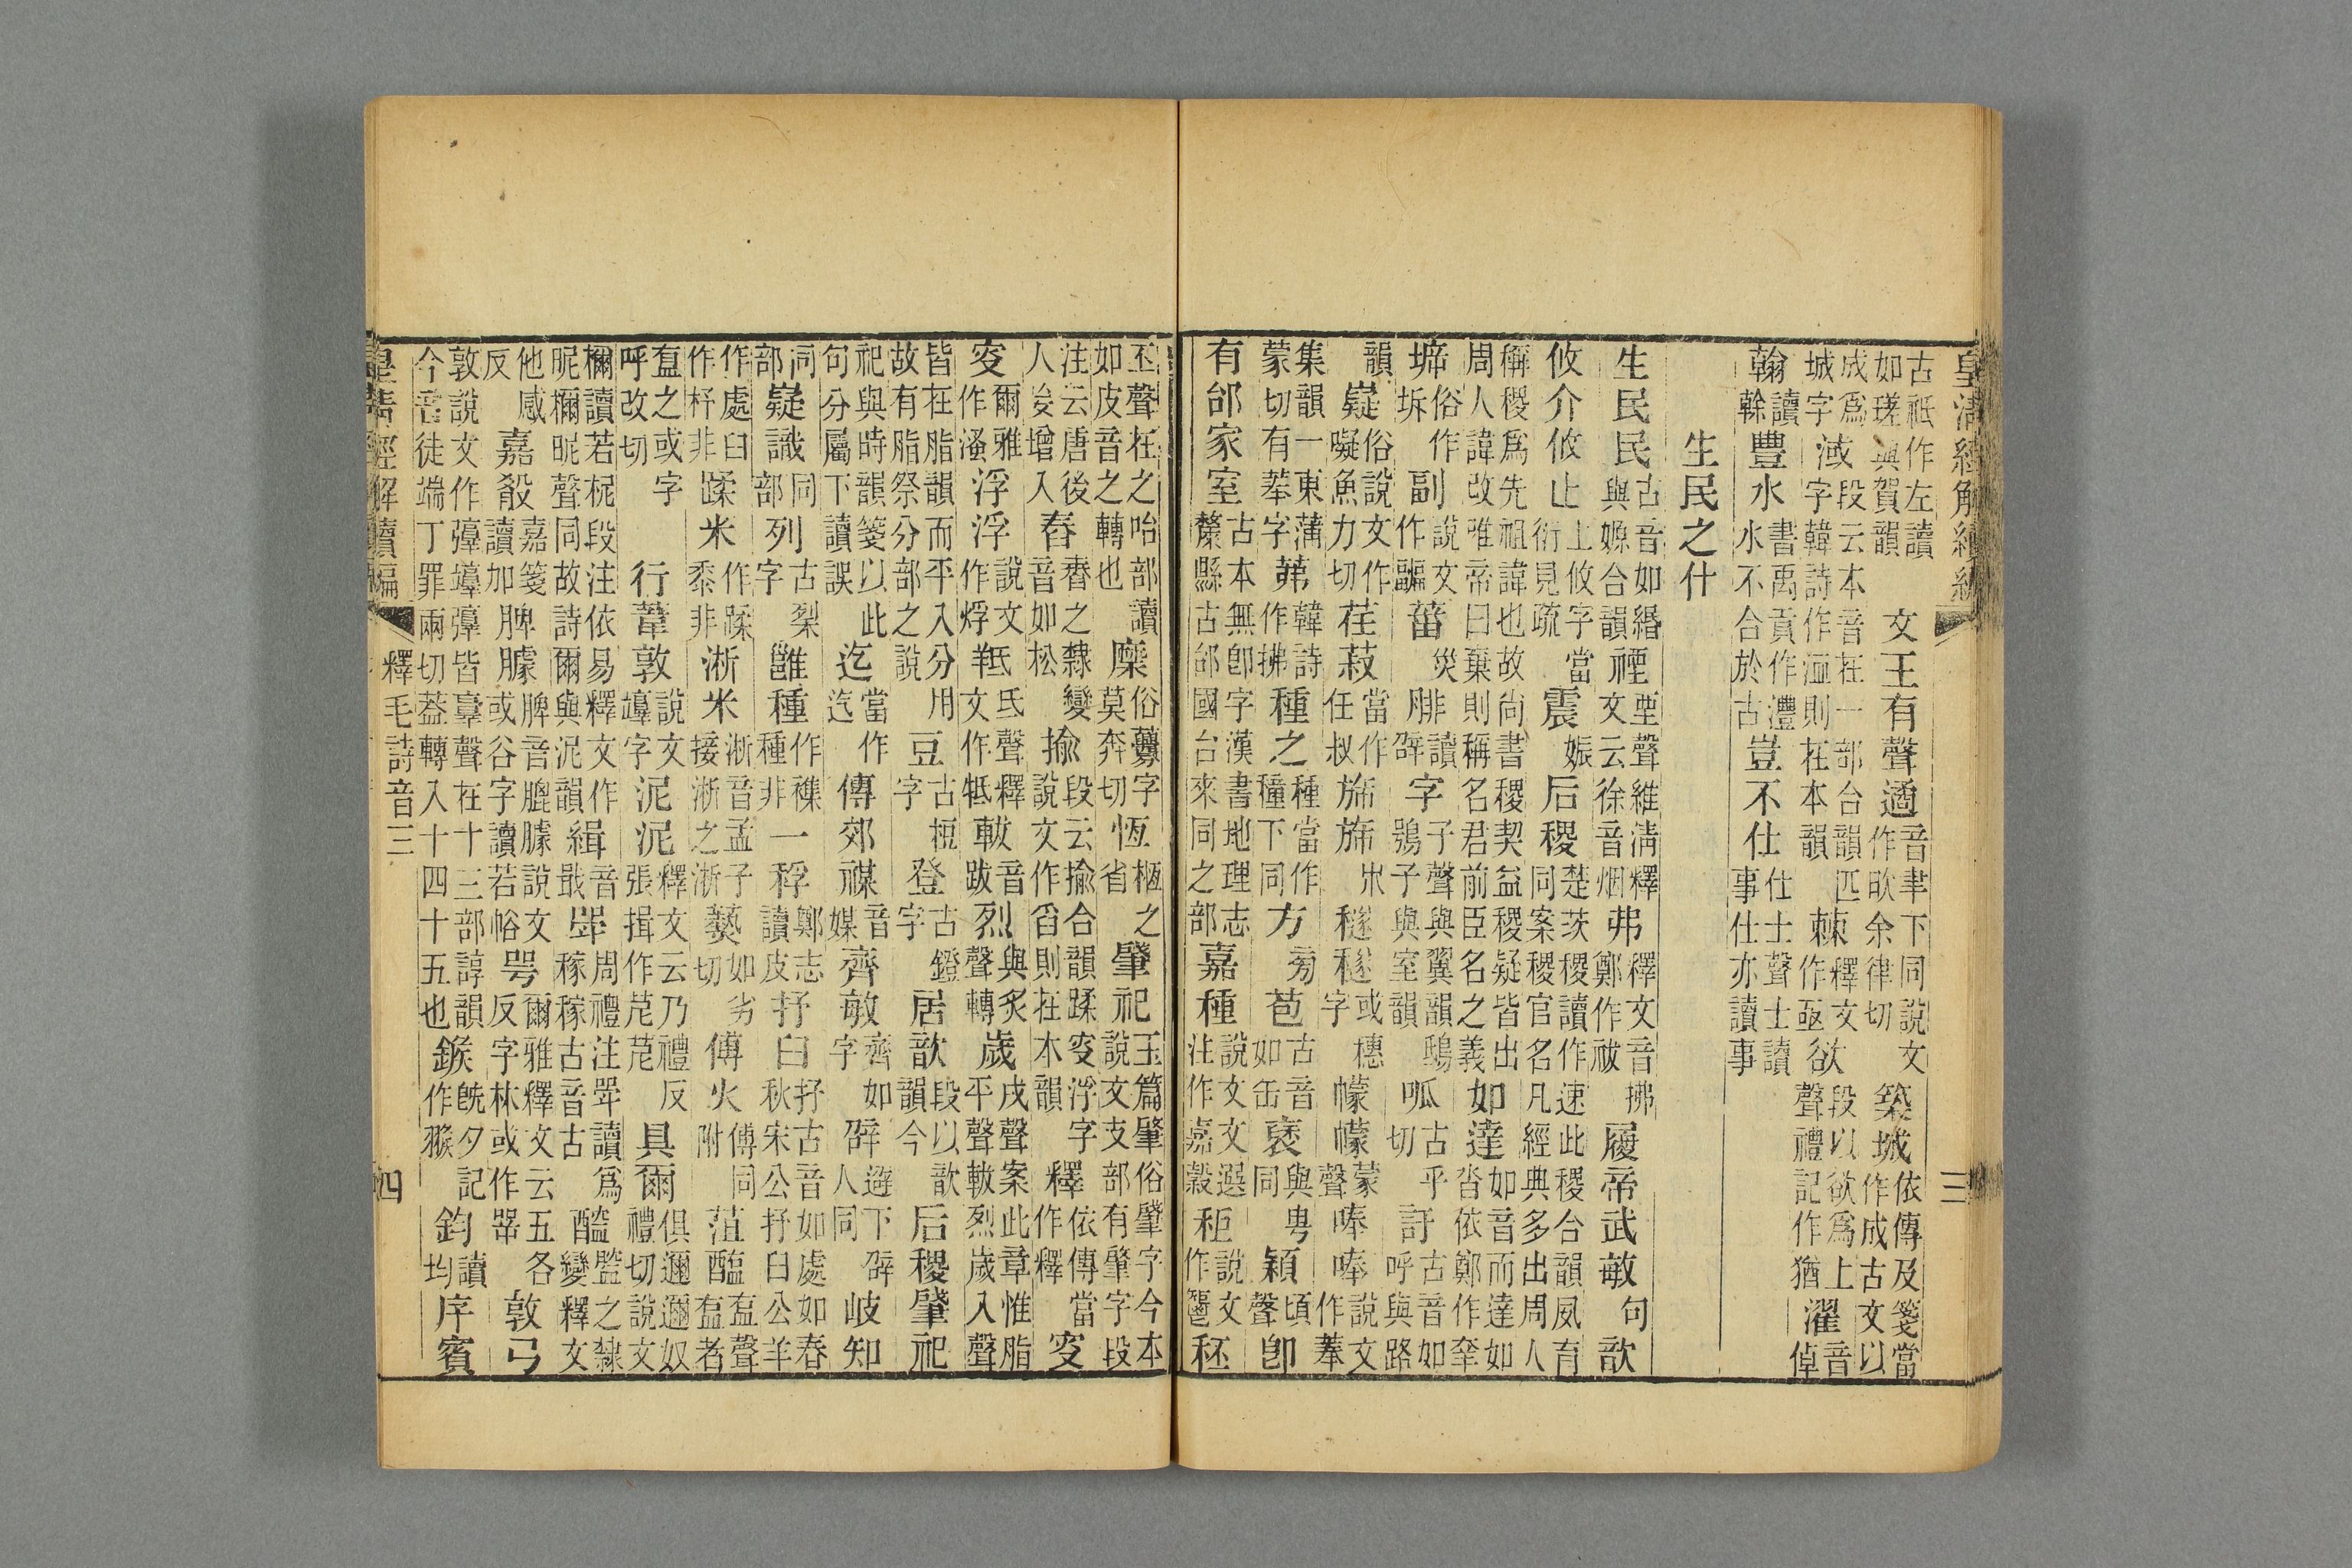 皇清經解續編 三
古祇作左讀如瑳與賀韻 文王有聲 遹音聿下同說文作欥余律切 築城依傳及箋當作成古文以
成爲城字 淢段云本音在一部合韻匹字韓詩作洫則在本韻 棘釋文作亟 欲段以欲爲上聲禮記作猶 濯音倬
翰讀榦 豐水書禹貢作灃水不合於古 豈不仕仕士聲士讀事仕亦讀事
生民之什
生民 民古音如緡與嫄合韻 禋垔聲維淸釋文云徐音烟 弗釋文音拂鄭作祓 履帝武敏句 歆
攸介攸止上攸字當衍見疏 震娠 后稷楚茨稷讀作速此稷合韻夙育同案稷官名凡經典多出周人
稱稷爲先祖諱也故尙書稷契益稷疑皆出周人諱改唯帝曰棄則稱名君前臣名之義 如達如音而達如沓依鄭作羍
㙤俗作坼 副說文作疈 菑災 腓讀辟 字子聲與翼韻鴟鴞子與室韻 呱古乎切 訏古音如呼與路
韻 嶷俗說文作㘈魚力切 荏菽當作任叔 旆旆𣎵 穟穟或穗字 幪幪蒙聲 唪唪說文作菶
集韻一東蒲蒙切有菶字 茀韓詩作拂 種之種當作穜下同 方旁 苞古音如缶 襃與𤰞同 穎頃聲 卽
有邰家室古本無卽字漢書地理志斄縣古邰國台來同之部 嘉種說文文選注作嘉穀 秬說文作𩰤 秠
丕聲在之咍部讀如皮音之轉也 穈俗虋字莫奔切 恆㮓之省 肇祀玉篇肇俗肈字今本說文攴部有肇字段
注云唐後人妄增入 舂㫪之隸變音如松 揄段云揄合韻蹂叜浮字說文作舀則在本韻 釋依傳當作釋 叜
叜爾雅作溞 浮浮說文作烰 羝氐聲釋文作牴 軷音跋 烈與炙聲轉 歲戌聲案此章惟脂平聲軷烈歲入聲
皆在脂韻而平入分用故有脂祭分部之說 豆古梪字 登古鐙字 居歆段以歆韻今 后稷肇祀
祀與時韻箋以此句分屬下讀誤 迄當作汔 傳 郊禖音媒 齊敏齊如字 辟避下辟人同 岐知
同部 嶷識同部 列古裂字 雝 種作穜種非 一稃鄭志讀皮 抒臼抒古音如處如舂秋宋公抒臼公羊
作處臼作杵非 蹂米作蹂黍非 淅米淅音孟子接淅之淅 爇如劣切 傅火傅同附 菹醢盇聲盇者
盇之或字呼改切 行葦 敦說文㙻字 泥泥釋文云乃禮反張揖作苨苨 具爾俱邇邇奴禮切說文
檷讀若柅段注依易釋文作昵檷昵聲同故詩爾與泥韻 緝音戢 斝周禮注斝讀爲稼稼古音古 醓監之隸變釋文
他感反 嘉殽嘉箋讀加 脾臄脾音膍臄說文或谷字讀若䘳 咢爾雅釋文云五各反字林或作㖾 敦弓
敦說文作弴㙻弴皆臺聲在十三部諄韻今音徒端丁罪兩切葢轉入十四十五也 鍭旣夕記作翭 鈞讀均 序賓
皇清經解續編 釋毛詩音三 四